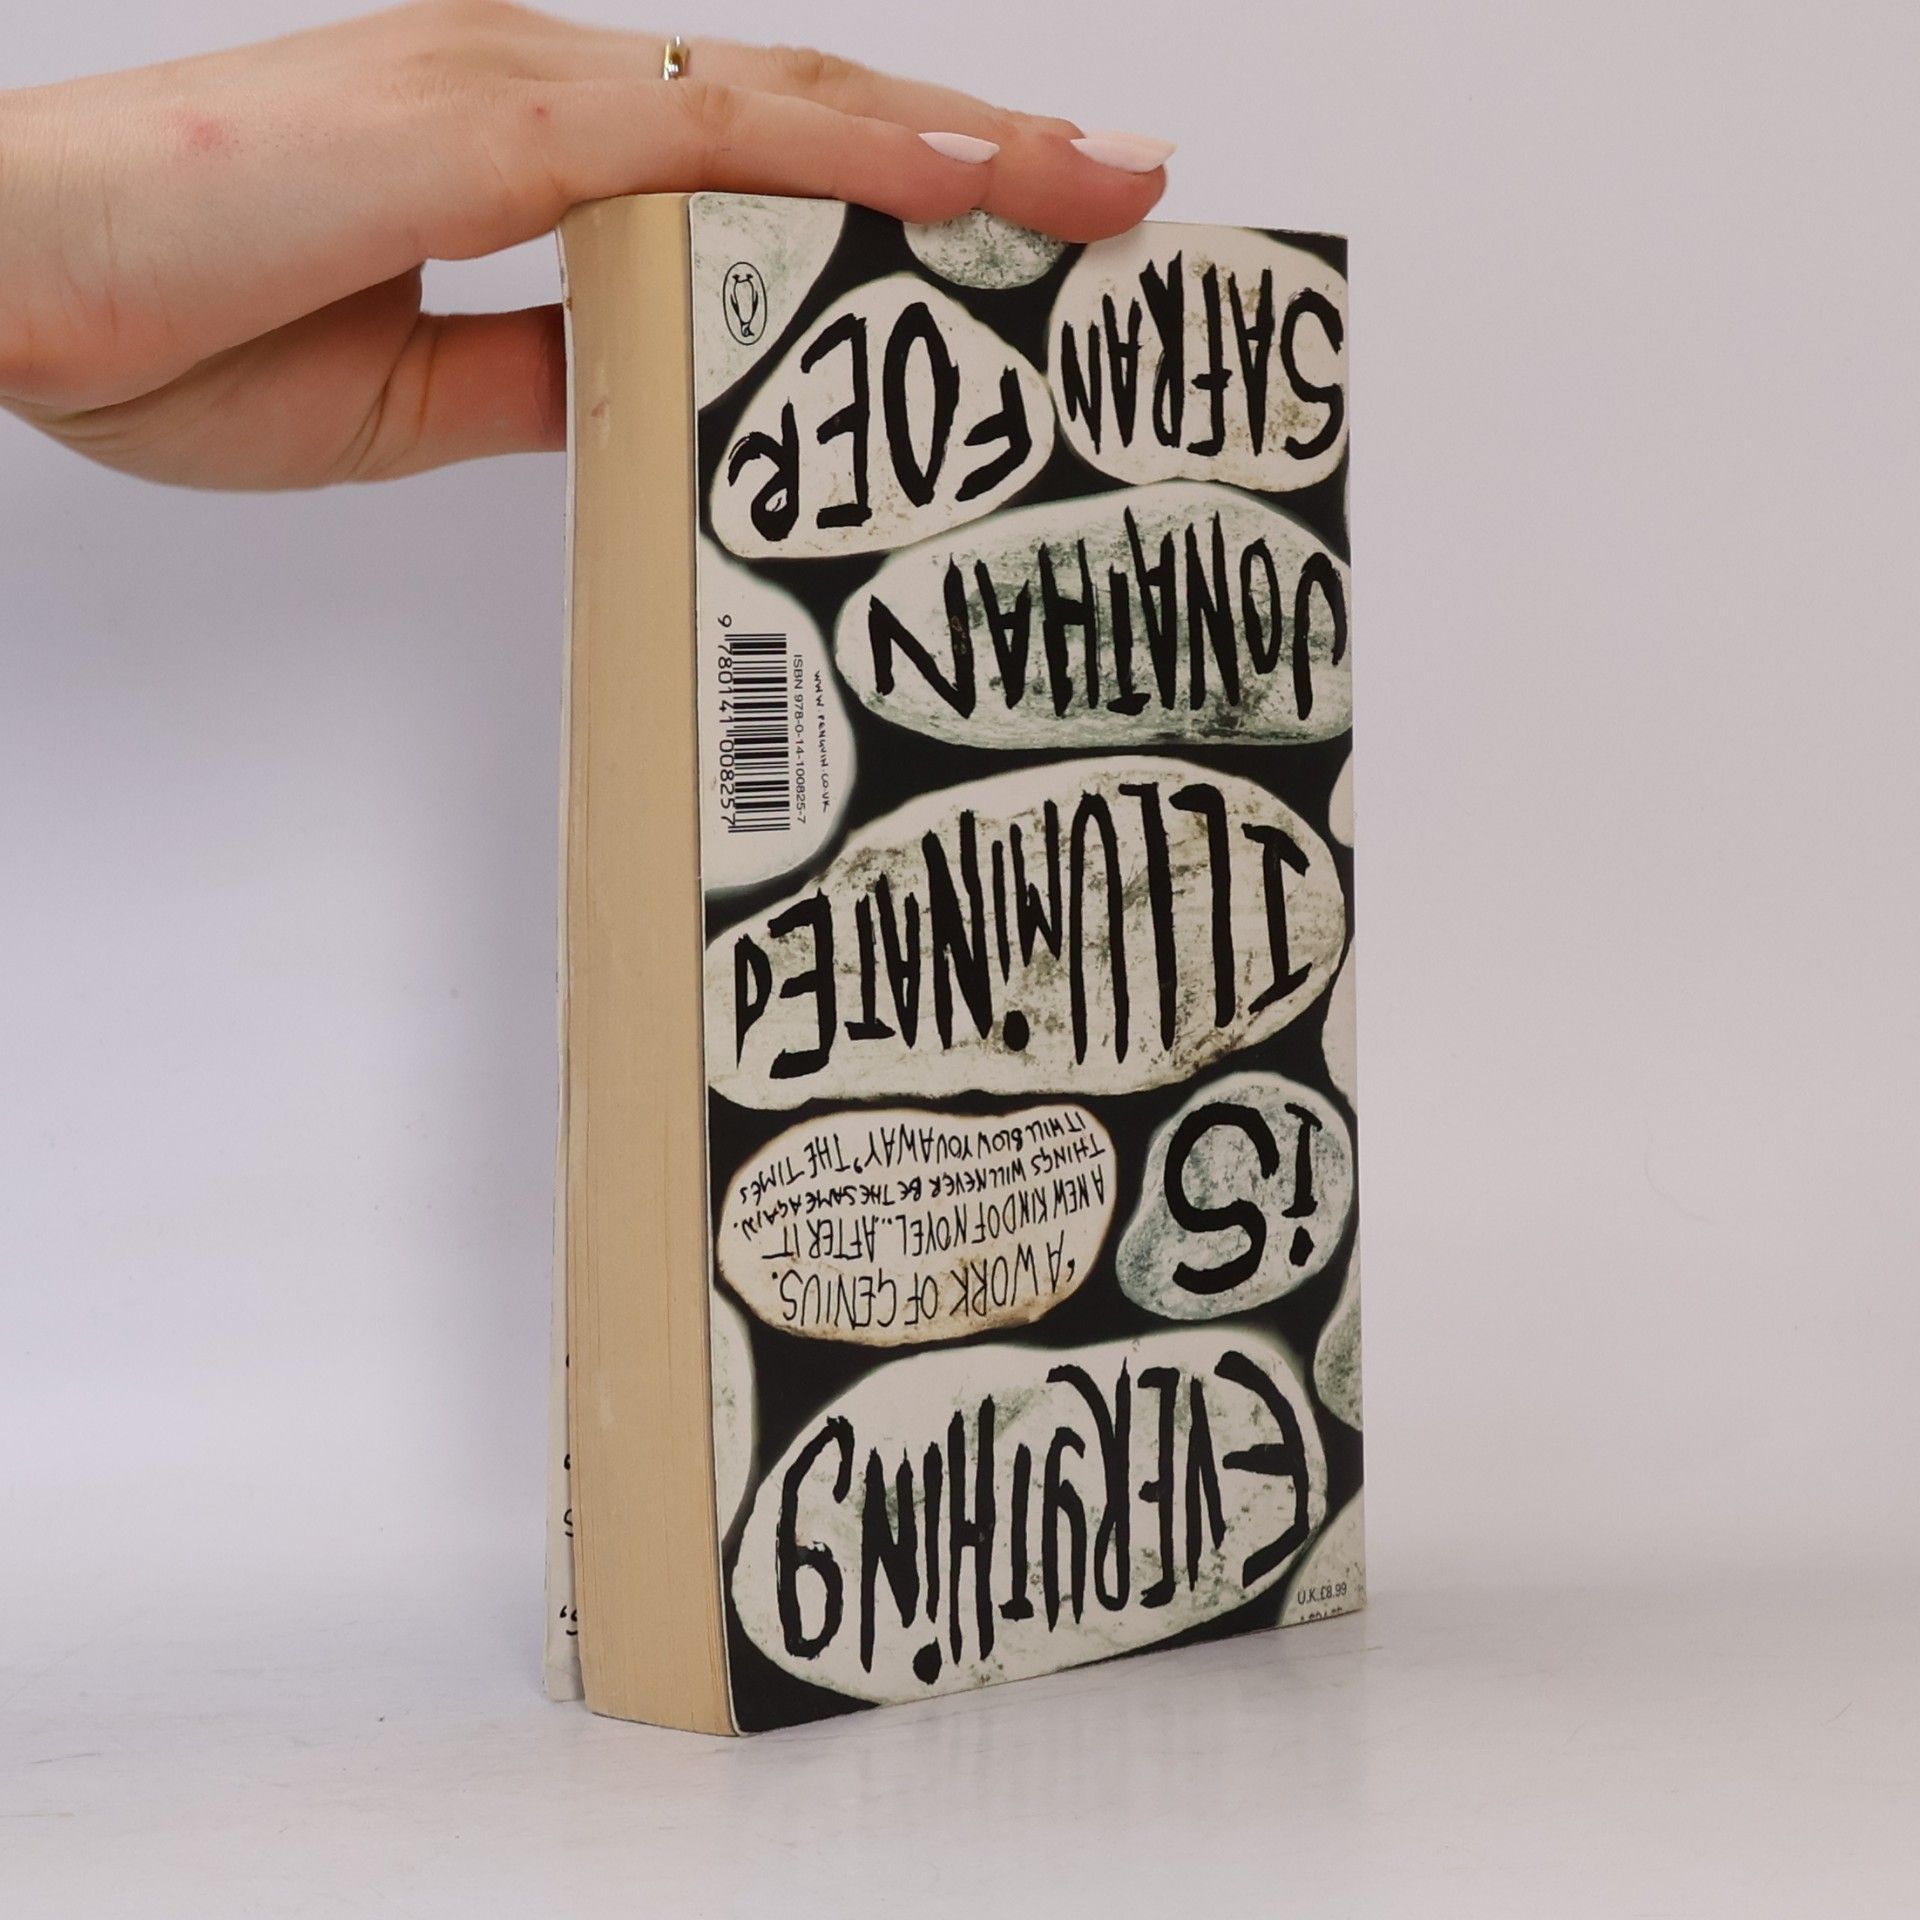 EVERYTHING
IS
‘A WORK OF GENIUS.
A NEW KIND OF NOVEL... AFTER IT
THINGS WILL NEVER BE THE SAME AGAIN.
IT WILL BLOW YOU AWAY’ THE TIMES
ILLUMINATED
JONATHAN
SAFRAN
FOER
WWW.PENGUIN.CO.UK
ISBN 978-0-14-100825-7
9 780141 008257
U.K. £8.99